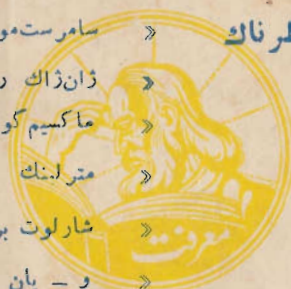 طرناك » سامرست مو
» ژان‌ژاك ر
» ماكسيم گو
» مترلینك
» شارلوت بر
» و ـ يان
معرفت